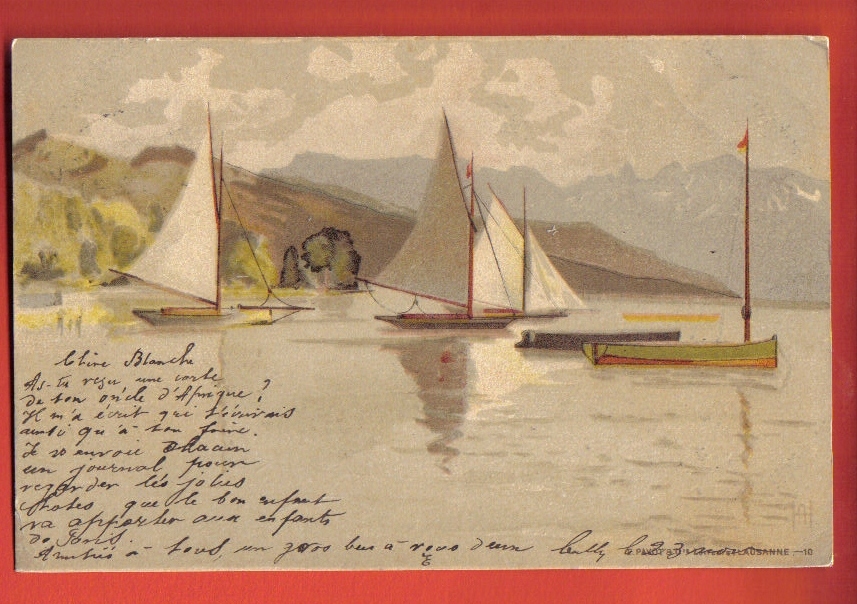 Chère Blanche
As-tu reçu, une carte
de ton oncle d'Afrique ?
Il m'a écrit qui t'écrivais
ainsi qu'à ton frère.
Je envoie chacun
un journal pour
regarder les jolies
choses que le bon enfant
va apporter aux enfants
de Paris.
Amitiés à tous, un gros à vous deux Cully 23
PAYOT LAUSANNE —10